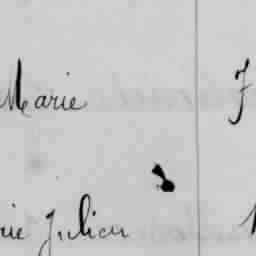 Marie F
rie Julien